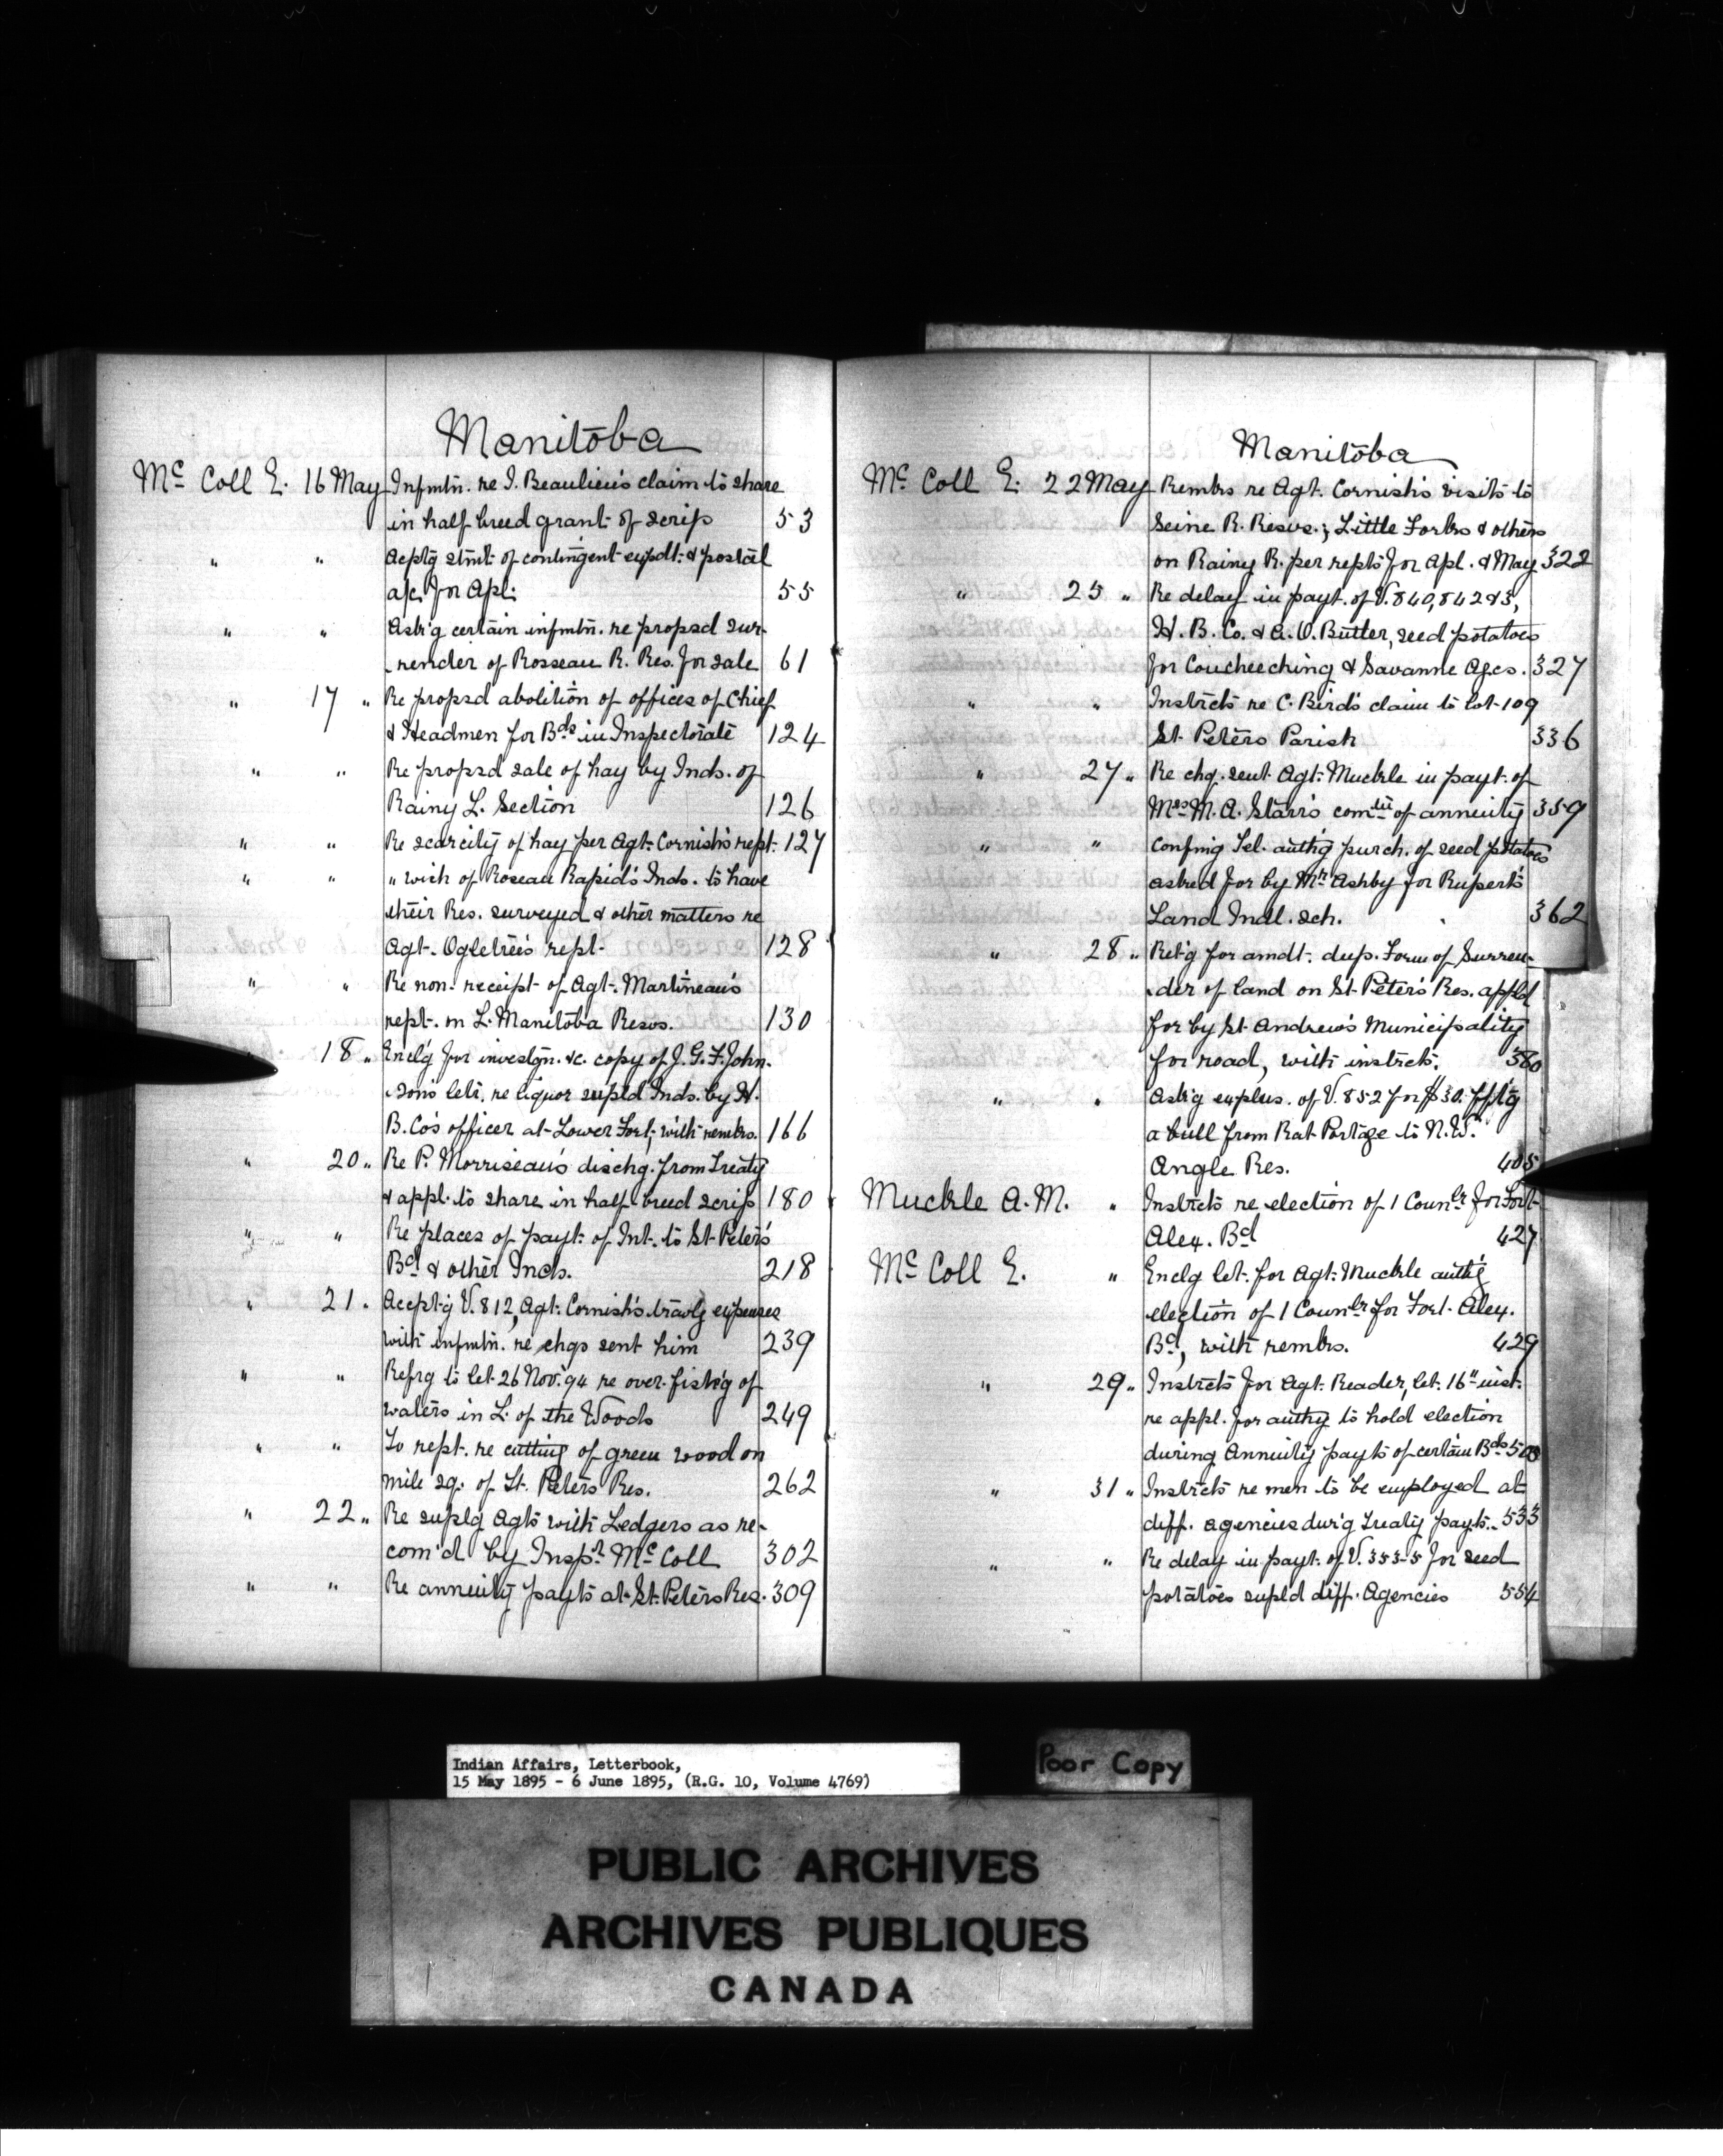 Manitoba
Mc Coll E. 16 May Infmtn. re I. Beaulieu's claim to share
in half breed grant of scrip 53
" " Acptg stmt of contingent expdt. & postal
a/c. for Apl. 55
" " Ask'g certain infmtn. re propsd sur-
render of Rosseau R. Res. for sale 61
" 17 " Re propsd abolition of offices of Chief
& Headmen for Bds in Inspectorate 124
" " Re propsd sale of hay by Inds. of
Rainy L. Section 126
" " Re scarcity of hay per Agt. Cornish's rept. 127
" " " wish of Roseau Rapid's Inds. to have
their Res. surveyed & other matters re
Agt. Ogletree's rept. 128
" " Re non-receipt of Agt. Martineau's
rept. on L. Manitoba Resvs. 130
18 " Encl'g for investgn. &c. copy of J. G. F. John-
son's letr. re liquor supld Inds. by H.
B. Co's officer at Lower Fort, with remks. 166
" 20 " Re P. Morriseau's dischg. from Treaty
& appl. to share in half breed scrip 180
" " Re places of payt. of Int. to St Peter's
Bd & other Inds. 218
" 21 " Accept'g V. 812, Agt. Cornish's travlg expenses
with infmtn. re chqs sent him 239
" " Refrg to let. 26 Nov. 94 re over-fish'g of
waters in L. of the Woods 249
" " To rept. re cutting of green wood on
mile sq. of St. Peters Res. 262
" 22 " Re suplg Agts with Ledgers as re-
com'd by Inspr. Mc Coll 302
" " Re annuity payts at St. Peters Res. 309
Manitoba
Mc Coll E. 22 May Remks re Agt. Cornish's visits to
Seine R. Resvs.; Little Forks & others
on Rainy R. per repts for Apl. & May 322
" 25 " Re delay in payt. of V. 840, 842 & 3,
H. B. Co. & A. O. Butter, seed potatoes
for Coucheeching & Savanne Agcs. 327
" " Instrcts re C. Bird's claim to lot 109
St Peters Parish 336
" 27 " Re chq. sent Agt. Muckle in payt. of
Mrs M. A. Starr's comtn of annuity 359
" " Confmg Tel. auth'g purch. of seed potatoes
asked for by Mr Ashby for Rupert's
Land Indl. sch. 362
" 28 " Ret'g for amdt. dup. Form of Surren-
der of land on St Peter's Res. appld
for by St Andrew's Municipality
for road, with instrcts. 380
" " Ask'g explns. of V. 852 for $30. f't'g
a bull from Rat Portage to N. W.
Angle Res. 405
Muckle A. M. " Instrcts re election of 1 Counlr for Fort
Alex. Bd 427
Mc Coll E. " Enclg let. for Agt. Muckle auth'g
election of 1 Counlr for Fort Alex.
Bd, with remks. 429
" 29 " Instrcts for Agt. Reader, let. 16" inst.
re appl. for authy to hold election
during Annuity payts of certain Bds
" 31 " Instrcts re men to be employed at
diff. agencies dur'g treaty payts. 533
" " Re delay in payt. of V. 3535 for seed
potatoes supld diff. Agencies 554
Indian Affairs, Letterbook,
15 May 1895 - 6 June 1895, (R.G. 10, Volume 4769)
Poor Copy
PUBLIC ARCHIVES
ARCHIVES PUBLIQUES
CANADA